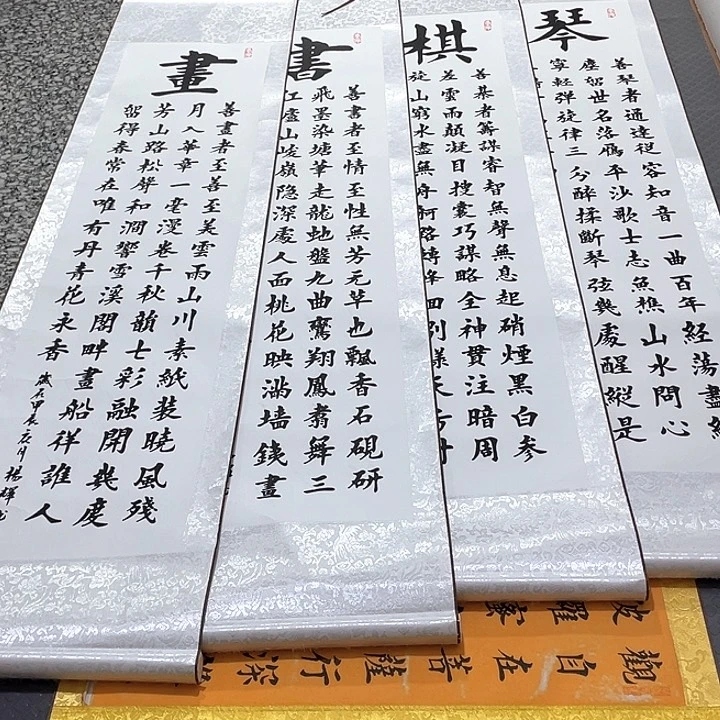 琴
善琴者通達從容知音一曲百年經蕩盡紅
塵留世名落雁平沙歌士志魚樵山水問心
寧輕彈旋律三分醉揉斷琴弦幾處醒縱是
棋
善棊者籌謀睿智無聲無息起硝煙黑白參
差雲雨顛凝目搜囊巧謀略全神貫注暗周
旋山窮水盡無舟路轉峰回別樣天
書
善書者至情至性無芳无草也飄香石硯研
飛墨染塘華走龍虵盤九曲鸞翔鳳翥舞三
江盧山峻嶺隐深處人面桃花映滿墙錢畫
畫
善畫者至善至美雲雨山川素紙裝曉風殘
月入華章一毫漫卷千秋韻七彩融開幾度
芳山路松聲和澗響雪溪閣畔畫船祥誰人
留得春常在唯有丹青花永香
歲在甲辰 月 楊輝
觀自在菩薩行深
波羅蜜